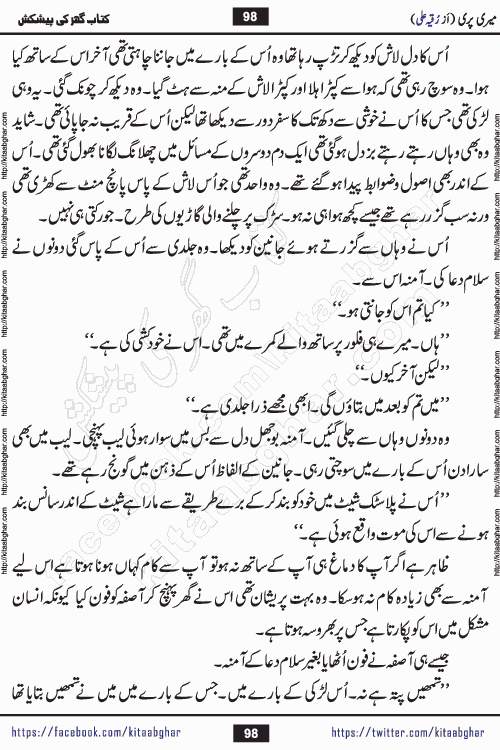 میری پری (از رُقیہ علی)
98
کتاب گھر کی پیشکش
اُس کا دل لاش کو دیکھ کر تڑپ رہا تھا وہ اُس کے بارے میں جاننا چاہتی تھی آخر اس کے ساتھ کیا
ہوا۔ وہ سوچ رہی تھی کہ ہوا سے کپڑا ہلا اور کپڑا لاش کے منہ سے ہٹ گیا۔ وہ دیکھ کر چونک گئی۔ یہ وہی
لڑکی تھی جس کا اُس نے خوشی سے دکھ تک کا سفر دور سے دیکھا تھا لیکن اُس کے قریب نہ جا پائی تھی۔ شاید
وہ بھی وہاں رہتے رہتے بزدل ہو گئی تھی ایک دم دوسروں کے مسائل میں چھلانگ لگانا بھول گئی تھی۔ اُس
کے اندر بھی اصول و ضوابط پیدا ہو گئے تھے۔ وہ واحد تھی جو اُس لاش کے پاس پانچ منٹ سے کھڑی تھی
ورنہ سب گزر رہے تھے جیسے کچھ ہوا ہی نہ ہو۔ سڑک پر چلنے والی گاڑیوں کی طرح۔ جو رکتی ہی نہیں۔
اُس نے وہاں سے گزرتے ہوئے جانین کو دیکھا۔ وہ جلدی سے اُس کے پاس گئی دونوں نے
سلام دعا کی۔ آمنہ اس سے۔
’’کیا تم اس کو جانتی ہو۔‘‘
’’ہاں۔ میرے ہی فلور پر ساتھ والے کمرے میں تھی۔ اس نے خودکشی کی ہے۔‘‘
’’لیکن آخر کیوں۔‘‘
’’میں تم کو بعد میں بتاؤں گی۔ ابھی مجھے ذرا جلدی ہے۔‘‘
وہ دونوں وہاں سے چلی گئیں۔ آمنہ بوجھل دل سے بس میں سوار ہوئی لیب پہنچی۔ لیب میں بھی
سارا دن اُس کے بارے میں سوچتی رہی۔ جانین کے الفاظ اُس کے ذہن میں گونج رہے تھے۔
’’اُس نے پلاسٹک شیٹ میں خود کو بند کر کے برے طریقے سے مارا ہے شیٹ کے اندر سانس بند
ہونے سے اس کی موت واقع ہوئی ہے۔‘‘
ظاہر ہے اگر آپ کا دماغ ہی آپ کے ساتھ نہ ہو تو آپ سے کام کہاں ہونا ہوتا ہے اس لیے
آمنہ سے بھی زیادہ کام نہ ہو سکا۔ وہ بہت پریشان تھی اس نے گھر پہنچ کر آصفہ کو فون کیا کیونکہ انسان
مشکل میں اس کو پکارتا ہے جس پر بھروسہ ہوتا ہے۔
جیسے ہی آصفہ نے فون اُٹھایا بغیر سلام دعا کے آمنہ۔
’’تمھیں پتہ ہے نہ۔ اُس لڑکی کے بارے میں۔ جس کے بارے میں میں نے تمھیں بتایا تھا
http://kitaabghar.com http://kitaabghar.com http://kitaabghar.com http://kitaabghar.com http://kitaabghar.com http://kitaabghar.com
http://kitaabghar.com http://kitaabghar.com http://kitaabghar.com http://kitaabghar.com http://kitaabghar.com http://kitaabghar.com
کتاب گھر کی پیشکش
kitaabghar.com
facebook.com/kitaabghar
https://facebook.com/kitaabghar
98
https://twitter.com/kitaabghar